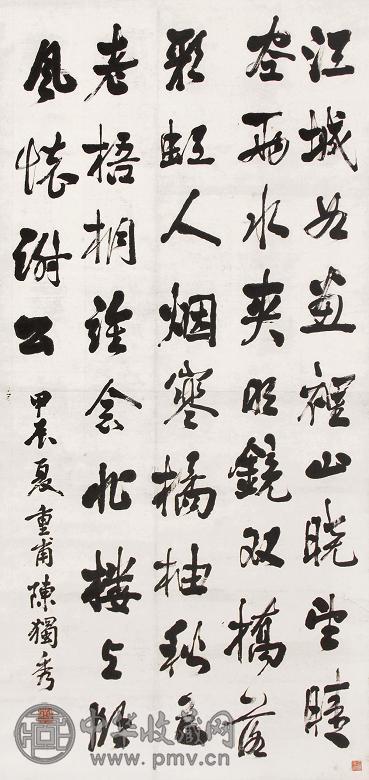 江城如畫裡山曉望晴
空兩水夾明鏡双橋落
彩虹人烟寒橘柚秋色
老梧桐誰念北樓上臨
風懷謝公
甲辰夏重甫陳獨秀
中华收藏网
www.pmv.cn